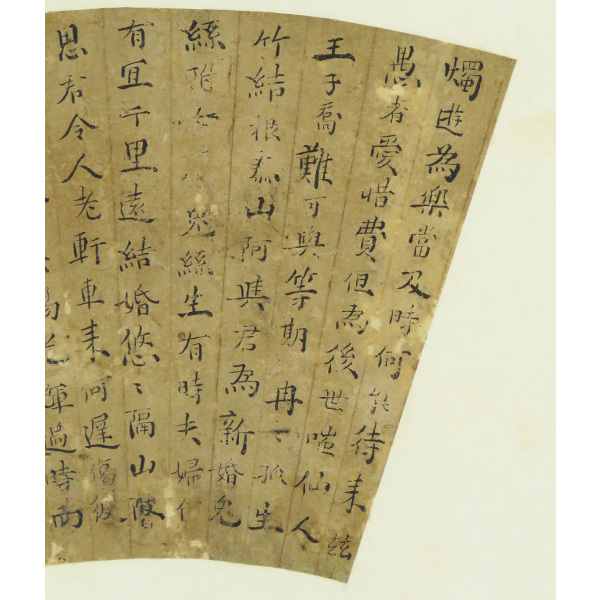 燭遊為樂當及時何能待来茲
愚者愛惜費但為後世嗤仙人
王子喬難可與等期冉〻孤生
竹結根泰山阿與君為新婚兔
絲附兔絲生有時夫婦
有宜千里遠結婚悠〻隔山
思君令人老軒車来何遲傷彼
光輝過時而